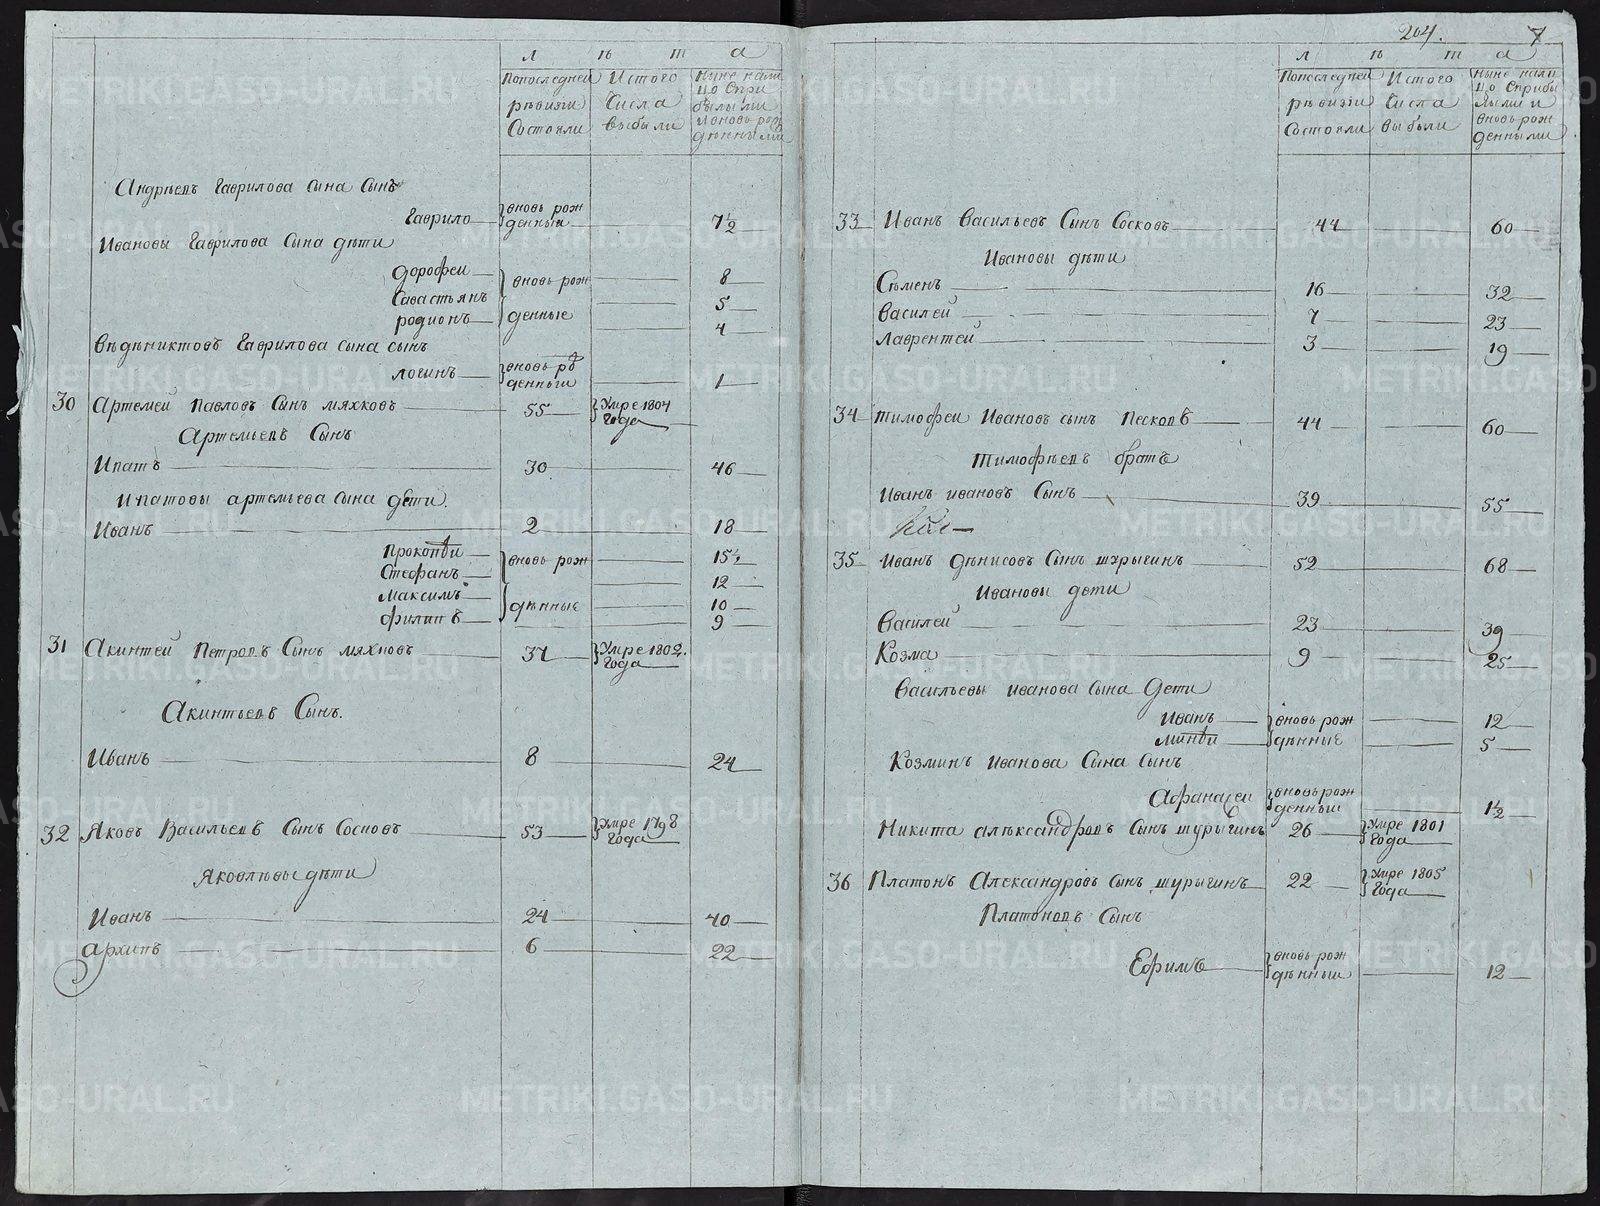 л ѣ т а
Попоследней Истого Ныне нали
рѣвизiи Числа цо Спри
Состояли выбыли былыми
и вновь рож
дѣнными
Андрѣевъ Гаврилова Сына Сынъ
Гаврило вновь рож денный 7½
Ивановы Гаврилова Сына дѣти
дорофеи вновь рож 8
Савастьянъ 5
родионъ денные 4
Вѣдѣниктовъ Гаврилова сына сынъ
логинъ вновь ро денный 1
30 Артемей Павловъ Сынъ мяхковъ 55 Умре 1804 года
Артемьевъ Сынъ
Ипатъ 30 46
Ипатовы артемьева сына дети.
Иванъ 2 18
Прокопѣи вновь рож 15½
Стефанъ 12
максимъ дѣнные 10
филипъ 9
31 Акинтей Петровъ Сынъ мяхковъ 37 Умре 1802. года
Акинтьевъ Сынъ.
Иванъ 8 24
32 Яковъ Васильевъ Сынъ Сосковъ 53 Умре 1798 года
Яковлѣвы дѣти
Иванъ 24 40
архипъ 6 22
204. 7
л ѣ т а
Попоследней Истого Ныне нали
рѣвизiи Числа цо Сприбы
Состояли выбыли лыми и
вновь рож
денными
33 Иванъ Васильевъ Сынъ Сосковъ 44 60
Ивановы дѣти
Сѣменъ 16 32
Василей 7 23
Лаврентей 3 19
34 Тимофеи Ивановъ сынъ Песковъ 44 60
Тимофѣевъ братъ
Иванъ ивановъ Сынъ 39 55
35 Иванъ дѣнисовъ Сынъ шурыгинъ 52 68
Ивановы дети
Василей 23 39
Козма 9 25
Васильевы иванова сына Дети
Иванъ вновь рож 12
минѣи дѣнные 5
Козминъ Иванова Сына Сынъ
Афанасеи вновь рож денный 1½
Никита алѣксандровъ Сынъ шурыгинъ 26 Умре 1801 года
36 Платонъ Александровъ Сынъ шурыгинъ 22 Умре 1805 года
Платоновъ Сынъ
Ефимъ вновь рож дѣнный 12
METRIKI.GASO-URAL.RU